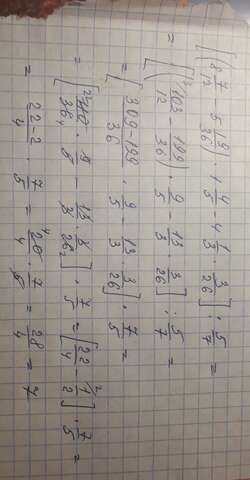 [(8 7/12 - 5 19/36) · 1 4/5 - 4 1/3 · 3/26] : 5/7 =
= [(³ 103/12 - 199/36) · 9/5 - 13/3 · 3/26] : 5/7 =
= [(309-199)/36 · 9/5 - 13/3 · 3/26] · 7/5 =
= [²²110/36₄ · 9/5 - 13/3 · 3/26₂] · 7/5 = [22/4 - ²1/2] · 7/5 =
= (22-2)/4 · 7/5 = ⁴20/4 · 7/5 = 28/4 = 7